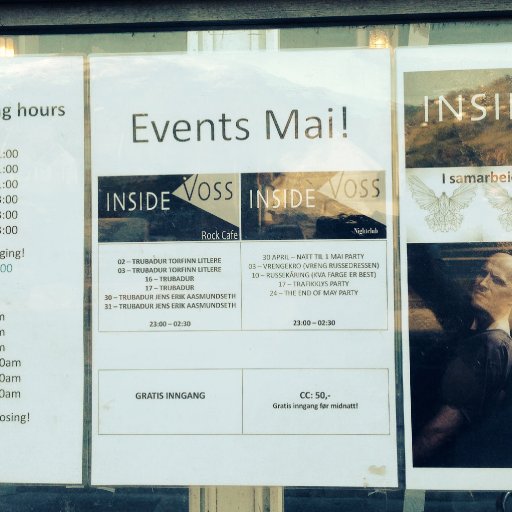 g hours
1:00
1:00
1:00
3:00
3:00
3:00
ging!
:00
m
m
m
0am
0am
0am
osing!
Events Mai!
INSIDE VOSS
Rock Cafe
02 – TRUBADUR TORFINN LITLERE
03 – TRUBADUR TORFINN LITLERE
16 – TRUBADUR
17 – TRUBADUR
30 – TRUBADUR JENS ERIK AASMUNDSETH
31 – TRUBADUR JENS ERIK AASMUNDSETH
23:00 – 02:30
GRATIS INNGANG
INSIDE VOSS
Nightclub
30 APRIL – NATT TIL 1 MAI PARTY
03 – VRENGEKRO (VRENG RUSSEDRESSEN)
10 – RUSSEKÅRING (KVA FARGE ER BEST)
17 – TRAFIKKLYS PARTY
24 – THE END OF MAY PARTY
23:00 – 02:30
CC: 50,-
Gratis inngang før midnatt!
INSI
I samarbei